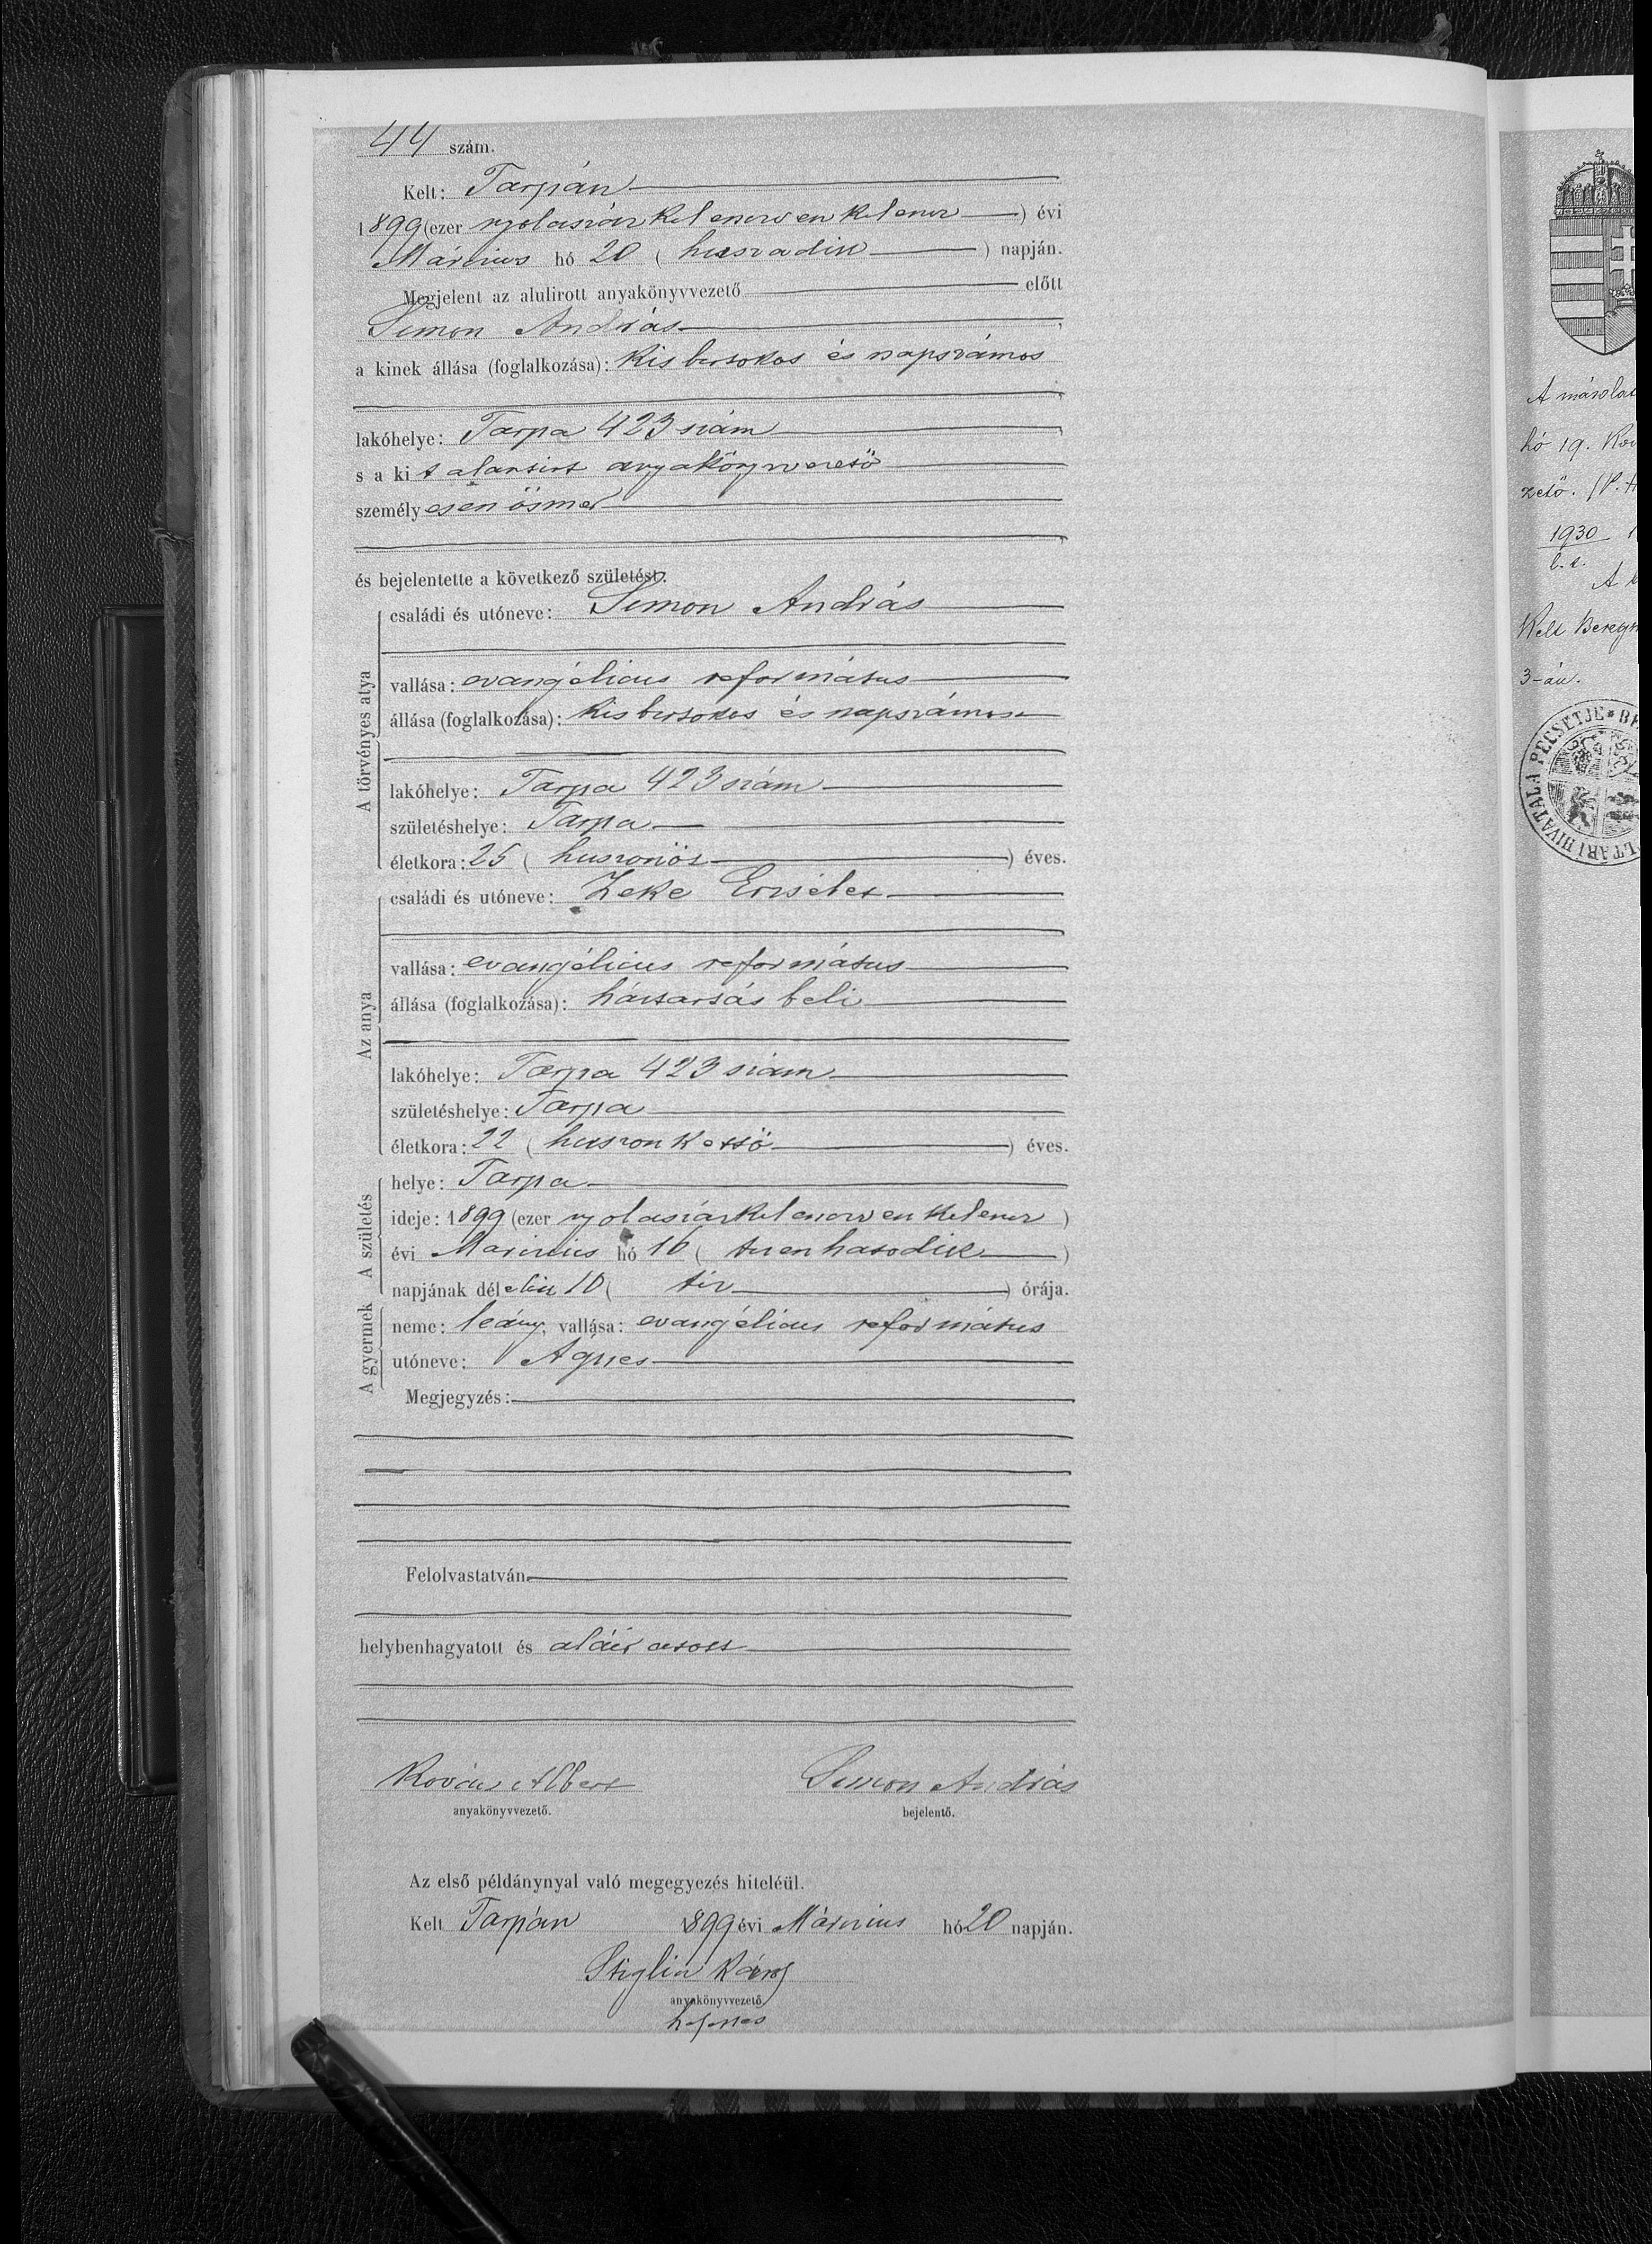 44 szám.
Kelt: Tarpán
1899 (ezer nyolczszázkilenczvenkilencz) évi
Március hó 20 (huszadik) napján.
Megjelent az alulirott anyakönyvvezető előtt
Simon András
a kinek állása (foglalkozása): kisbirtokos és napszámos
lakóhelye: Tarpa 423 szám
s a kit alantirt anyakönyvvezető
személyesen ösmer
és bejelentette a következő születést:
A törvényes atya
családi és utóneve: Simon András
vallása: evangélicus református
állása (foglalkozása): kisbirtokos és napszámos
lakóhelye: Tarpa 423 szám
születéshelye: Tarpa
életkora: 25 (huszonöt) éves.
Az anya
családi és utóneve: Zeke Erzsébet
vallása: evangélicus református
állása (foglalkozása): háztartásbeli
lakóhelye: Tarpa 423 szám
születéshelye: Tarpa
életkora: 22 (huszonkettö) éves.
A születés
helye: Tarpa
ideje: 1899 (ezer nyolczszázkilenczvenkilencz)
évi Marczius hó 16 (tizenhatodik)
napjának délelőtt 10 (tiz) órája.
A gyermek
neme: leány; vallása: evangélicus református
utóneve: Ágnes
Megjegyzés:
Felolvastatván
helybenhagyatott és aláiratott
Kovács Albert Simon András
anyakönyvvezető. bejelentő.
Az első példánynyal való megegyezés hiteléül.
Kelt Tarpán 1899 évi Márczius hó 20 napján.
Stiglin Károly
anyakönyvvezető
helyettes
hó 19.
1930
Kelt
3-án.